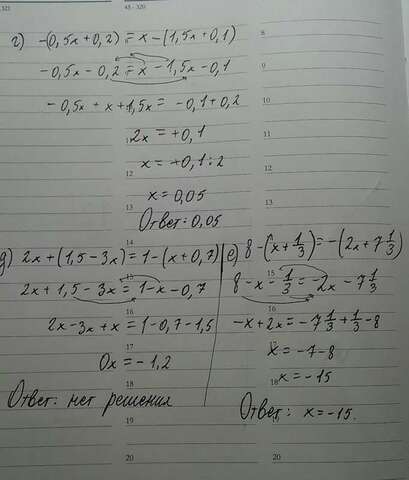 321
45 - 320
г) -(0,5x+0,2)=x-(1,5x+0,1)
8
-0,5x-0,2=x-1,5x-0,1
9
-0,5x-x+1,5x=-0,1+0,2
10
2x=+0,1
11
x=+0,1:2
12
x=0,05
13
Ответ: 0,05
14
д) 2x+(1,5-3x)=1-(x+0,7)
2x+1,5-3x=1-x-0,7
15
2x-3x+x=1-0,7-1,5
16
0x=-1,2
17
Ответ: нет решения
18
19
20
е) 8-(x+1/3)=-(2x+7 1/3)
8-x-1/3=-2x-7 1/3
15
-x+2x=-7 1/3+1/3-8
16
x=-7-8
17
x=-15
18
Ответ: x=-15.
19
20